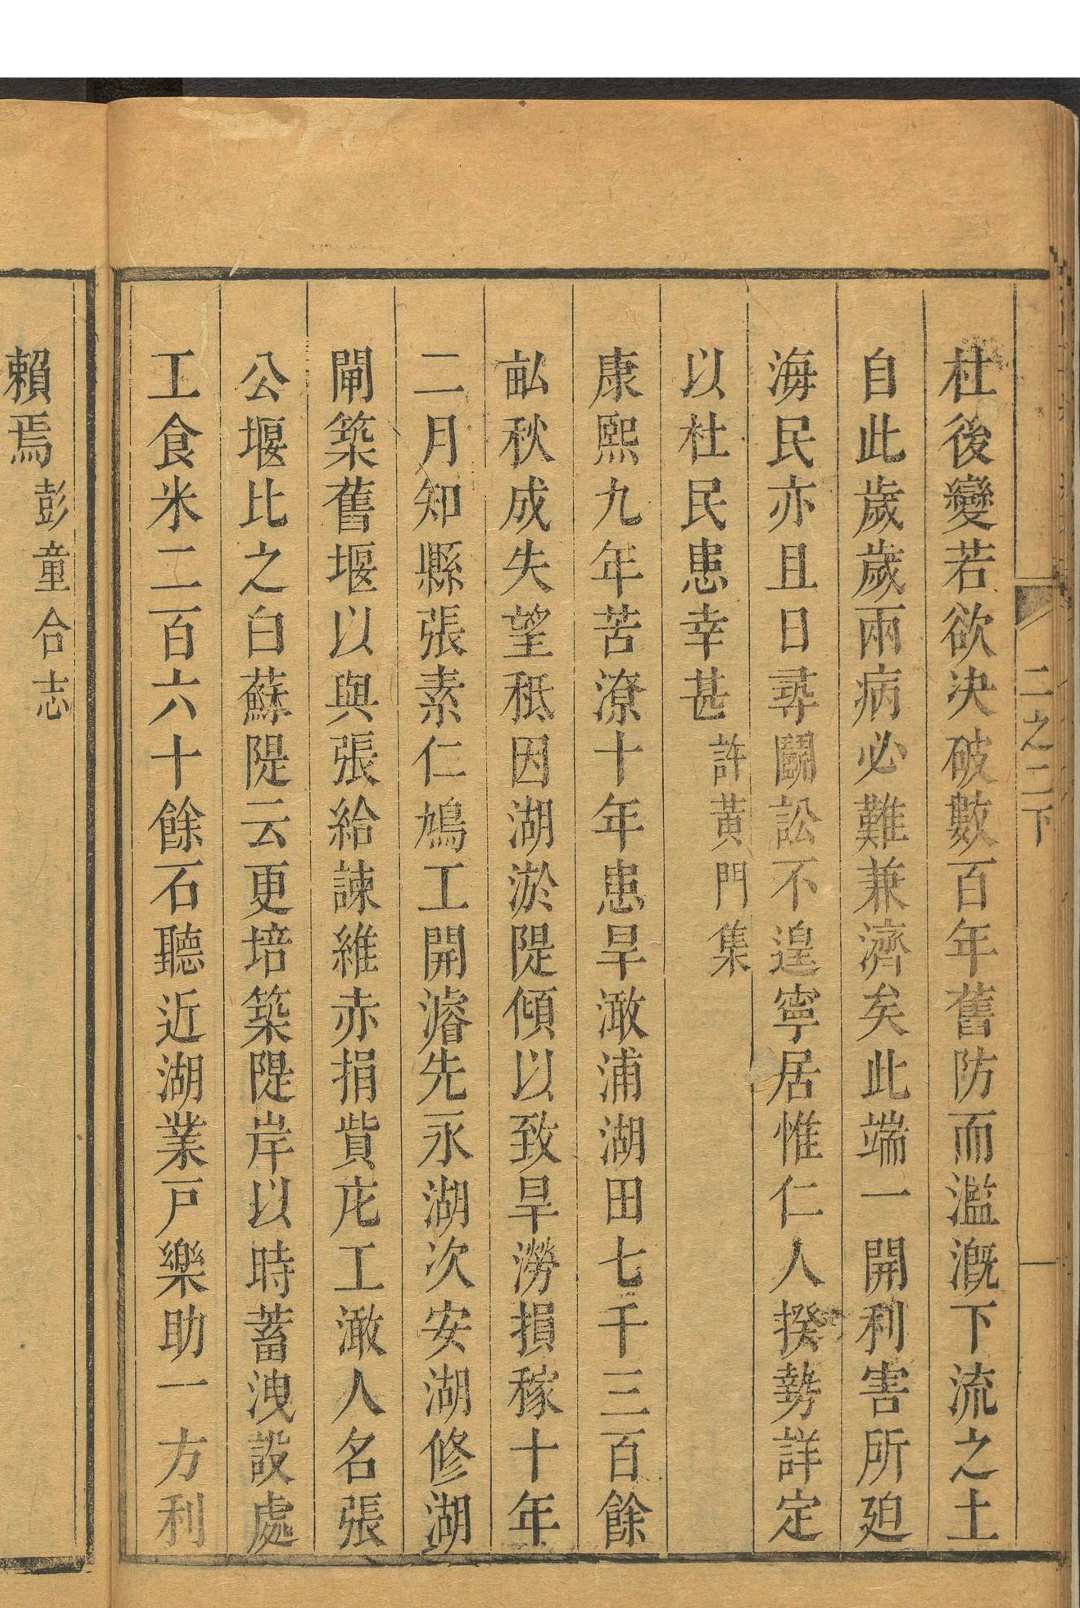 二之二下
杜後變若欲决破數百年舊防而濫溉下流之土
自此歲歲兩病必難兼濟矣此端一開利害所廹
海民亦且日尋鬭訟不遑寧居惟仁人揆勢詳定
以杜民患幸甚許黃門集
康熙九年苦潦十年患旱澉浦湖田七千三百餘
畆秋成失望秪因湖淤隄傾以致旱澇損稼十年
二月知縣張素仁鳩工開濬先永湖次安湖修湖
閘築舊堰以與張給諫維赤捐貲庀工澉人名張
公堰比之白蘇隄云更培築隄岸以時蓄洩設處
工食米二百六十餘石聽近湖業戸樂助一方利
賴焉彭童合志